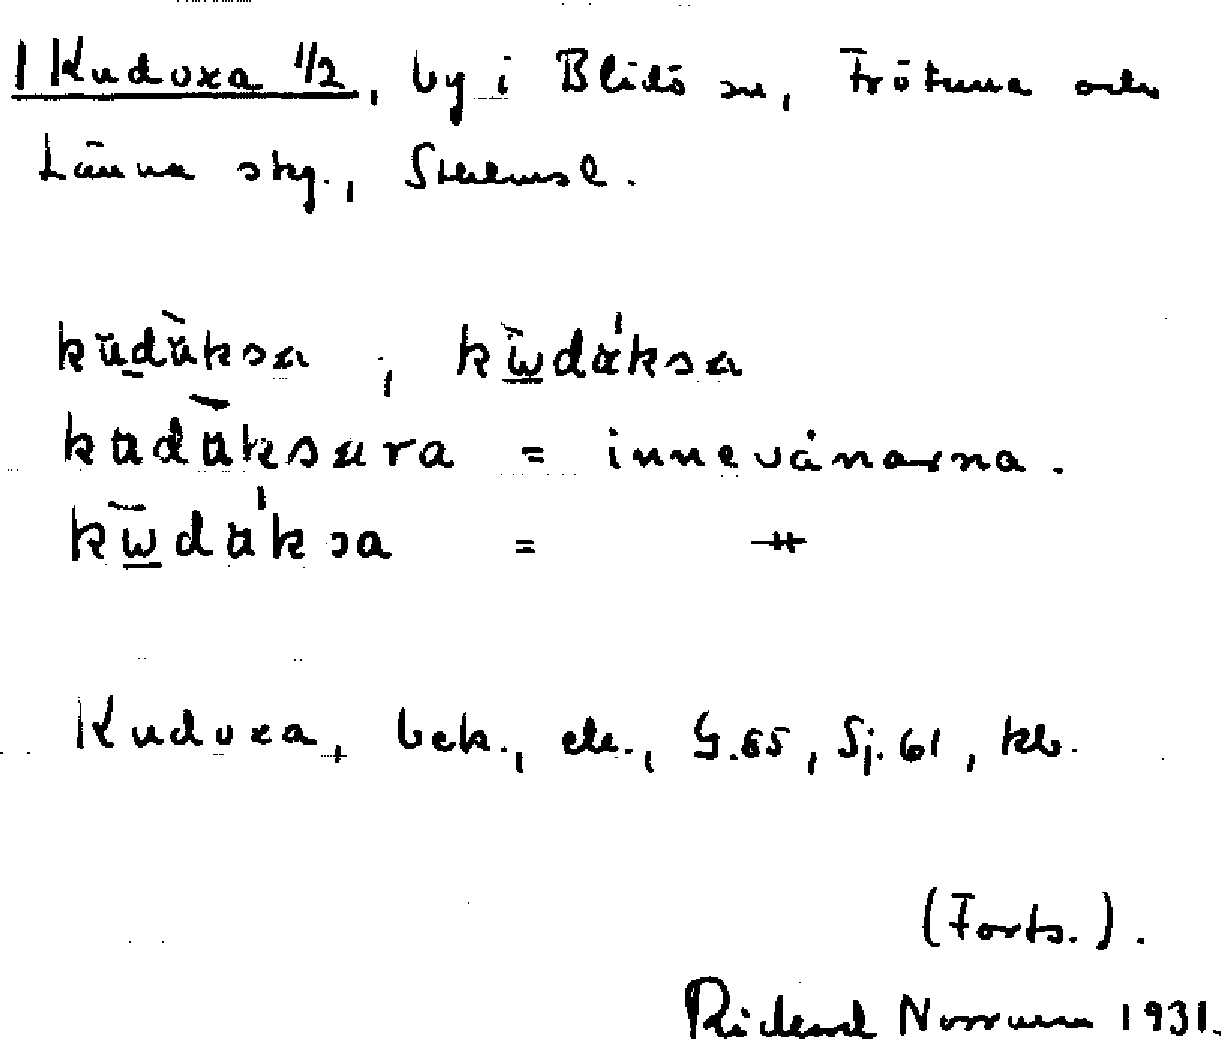 1 Kudoxa 1/2, by i Blidö sn, Frötuna och
Länna skg., Sthlms l.
kùdàksa, kẁdáksa
kudàksara = innevånarna.
kw̄dáksa = –"–
Kudoxa, bek., ek., G.65, Sj. 61, kb.
(Forts.).
Rickard Norrman 1931.